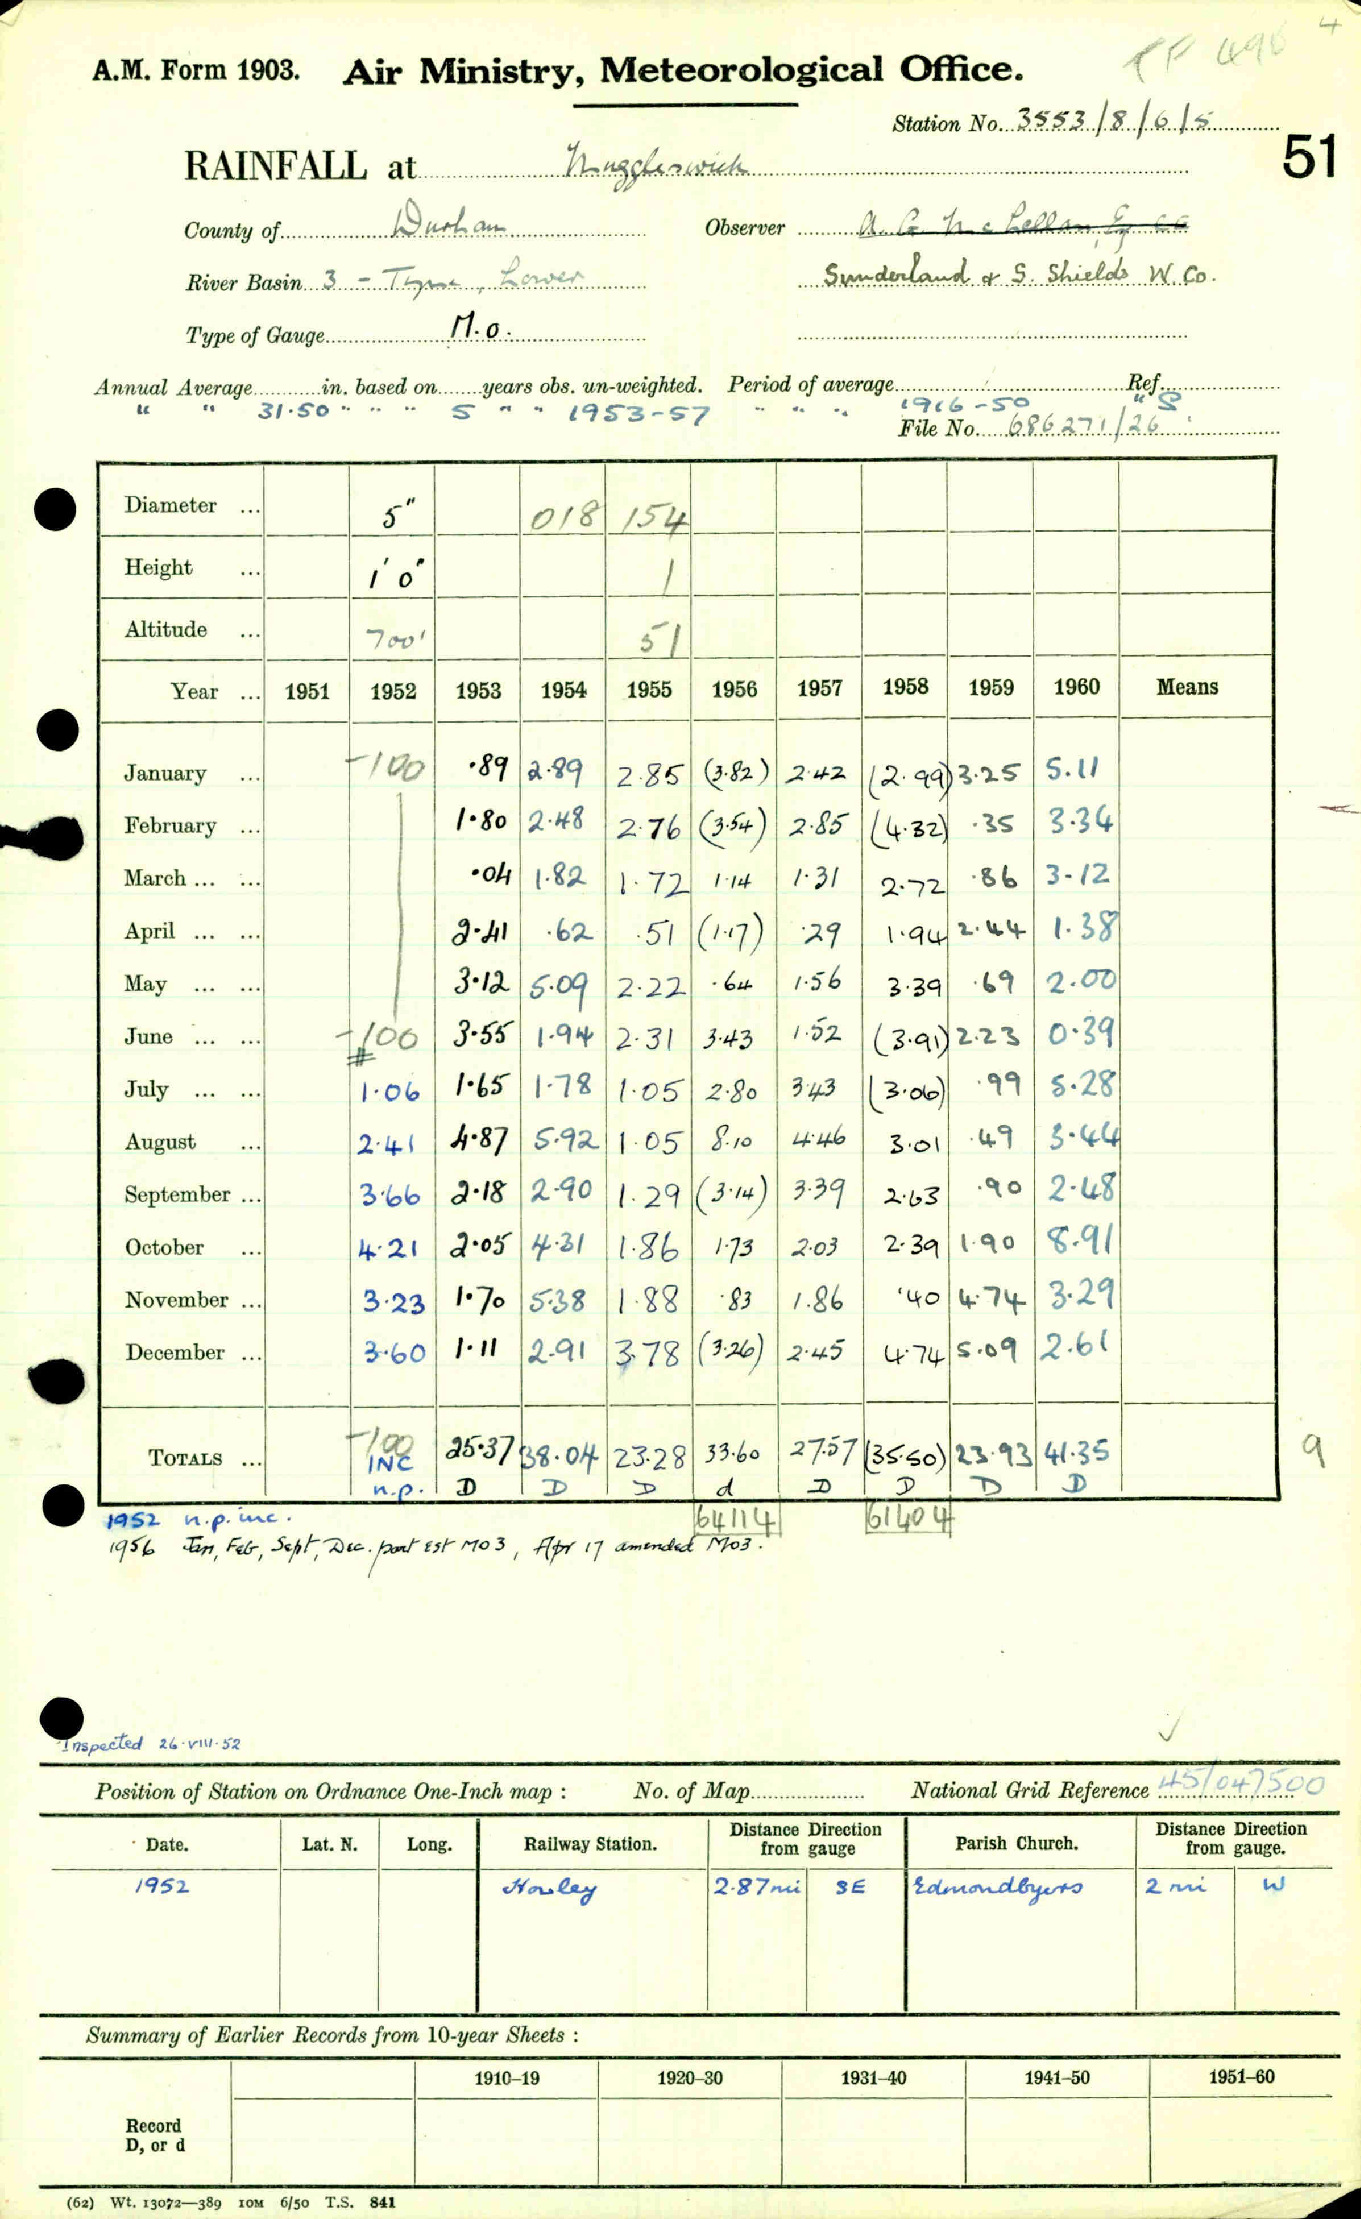 4
A.M. Form 1903. Air Ministry, Meteorological Office.
Station No. 3553/8/6/5
51
RAINFALL at Muggleswick
County of Durham Observer A. G. McLellan, Esq
River Basin 3 - Tyne, Lower Sunderland & S. Shields W. Co.
Type of Gauge M.O.
Annual Average in. based on years obs. un-weighted. Period of average Ref.
" " 31.50 " " " 5 " " 1953-57 " " " 1916-50 " S
File No. 686271/26
Diameter ... 5" 018 154
Height ... 1' 0" 1
Altitude ... 700' 51
Year ... 1951 1952 1953 1954 1955 1956 1957 1958 1959 1960 Means
January ... -100 .89 2.89 2.85 (3.82) 2.42 (2.99) 3.25 5.11
February ... 1.80 2.48 2.76 (3.54) 2.85 (4.32) .35 3.34
March ... ... .04 1.82 1.72 1.14 1.31 2.72 .86 3.12
April ... ... 2.41 .62 .51 (1.17) .29 1.94 2.44 1.38
May ... ... 3.12 5.09 2.22 .64 1.56 3.39 .69 2.00
June ... ... -100 3.55 1.94 2.31 3.43 1.52 (3.91) 2.23 0.39
July ... ... 1.06 1.65 1.78 1.05 2.80 3.43 (3.06) .99 5.28
August ... 2.41 4.87 5.92 1.05 8.10 4.46 3.01 .49 3.44
September ... 3.66 2.18 2.90 1.29 (3.14) 3.39 2.63 .90 2.48
October ... 4.21 2.05 4.31 1.86 1.73 2.03 2.39 1.90 8.91
November ... 3.23 1.70 5.38 1.88 .83 1.86 .40 4.74 3.29
December ... 3.60 1.11 2.91 3.78 (3.26) 2.45 4.74 5.09 2.61
TOTALS ... -100 INC 25.37 38.04 23.28 33.60 27.57 (35.50) 23.93 41.35 9
n.p. D D D d D D D D
1952 n.p. inc. 64114 61404
1956 Jan, Feb, Sept, Dec. part est MO3, Apr 17 amended MO3.
Inspected 26.VIII.52
Position of Station on Ordnance One-Inch map : No. of Map National Grid Reference 45/047500
Date. Lat. N. Long. Railway Station. Distance Direction from gauge Parish Church. Distance Direction from gauge.
1952 Rowley 2.87mi SE Edmondbyers 2 mi W
Summary of Earlier Records from 10-year Sheets :
1910–19 1920–30 1931–40 1941–50 1951–60
Record
D, or d
(62) Wt. 13072—389 10M 6/50 T.S. 841